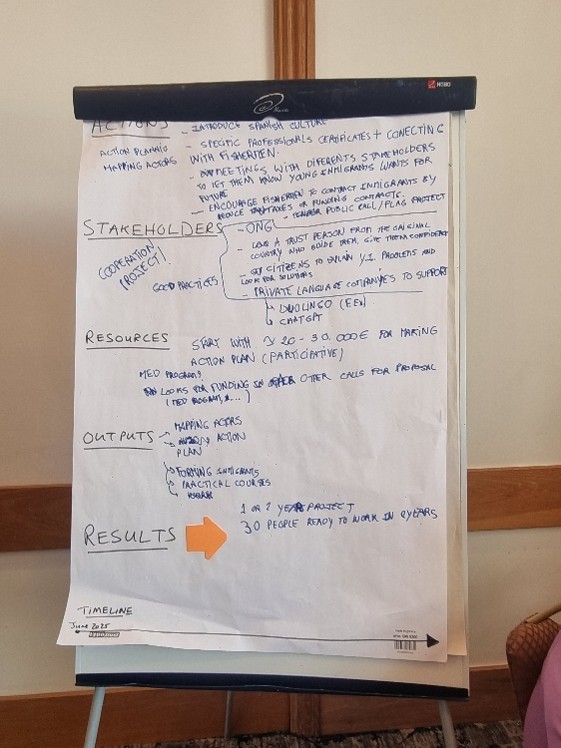 NOBO
ACTIONS
- INTRODUCE SPANISH CULTURE
ACTION PLANNIG
MAPPING ACTORS
- SPECIFIC PROFESSIONALS CERTIFICATES + CONECTING
WITH FISHERMEN.
- MEETINGS WITH DIFERENTS STAKEHOLDERS
TO LET THEM KNOW YOUNG INMIGRANTS WANTS FOR
FUTURE
- ENCOURAGE FISHERMEN TO CONTRACT INMIGRANTS BY
REDUCE TAXES OR FUNDING CONTRACTS.
PUBLIC CALL / PROJECT
STAKEHOLDERS
- ONG
COOPERATION
PROJECT!
GOOD PRACTICES
- A TRUST PERSON FROM THE ORIGINAL
COUNTRY WHO GUIDE THEM. GIVE THEM
- CITIZENS TO EXPLAIN Y.I. PROBLEMS AND
LOOK FOR SOLUTIONS
- PRIVATE LANGUAGE COMPANYIES TO SUPPORT
DUOLINGO
CHATGPT
RESOURCES
START WITH 20-30.000€ FOR MAKING
ACTION PLAN (PARTICIPATIVE)
MED PROGRAM?
LOOKS FOR FUNDING IN OTHER CALLS FOR PROPOSAL
(MED PROGRAM, ...)
OUTPUTS
MAPPING ACTORS
ACTION
PLAN
FORMING INMIGRANTS
PRACTICAL COURSES
RESULTS
1 OR 2 YEAR PROJECT
30 PEOPLE READY TO WORK IN 2 YEARS
TIMELINE
June 2025